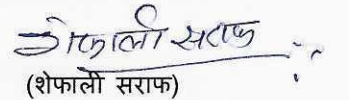 शेफाली सराफ
(शेफाली सराफ)